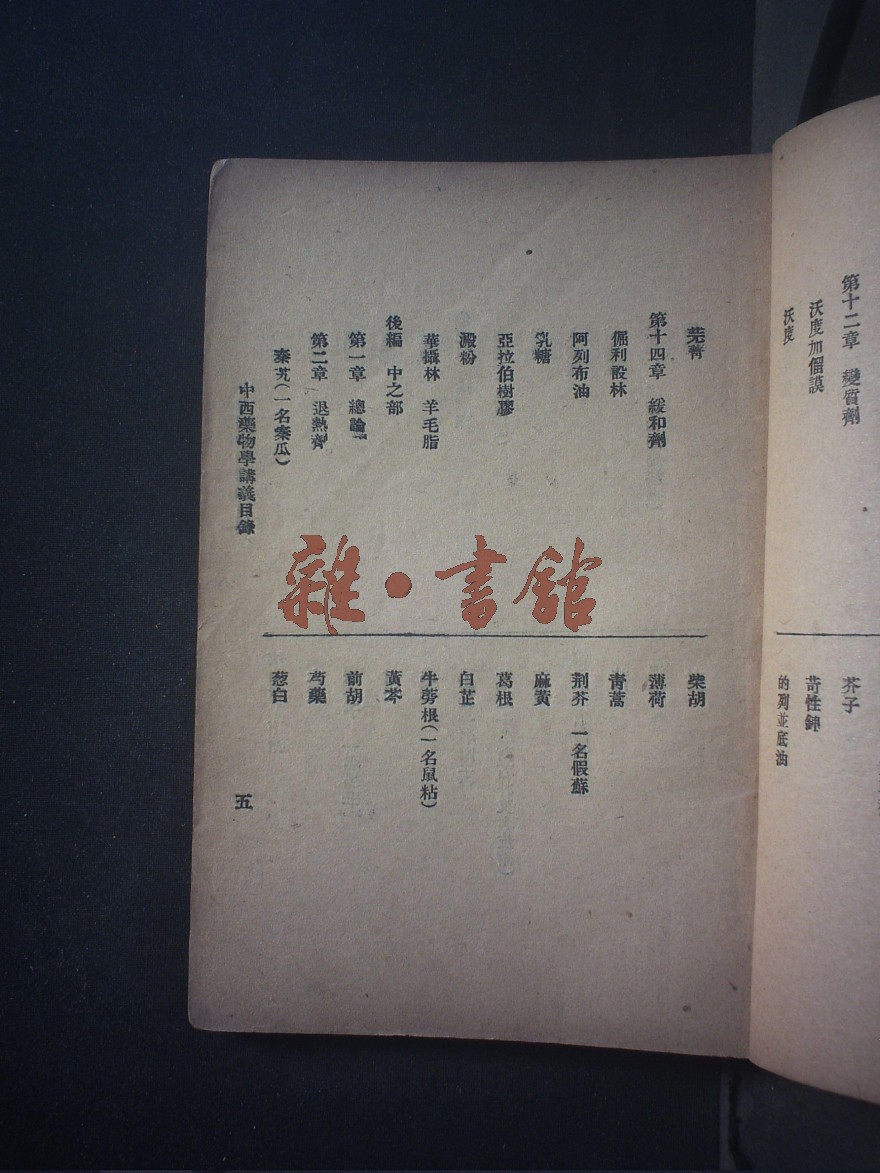 第十二章　變質劑
沃度加僴謨
沃度
芥子
苛性鉀
的列並底油
芫菁
第十四章　緩和劑
倔利設林
阿列布油
乳糖
亞拉伯樹膠
澱粉
華攝林　羊毛脂
後編　中之部
第一章　總論
第二章　退熱劑
秦艽（一名秦瓜）
柴胡
薄荷
青蒿
荆芥　一名假蘇
麻黃
葛根
白芷
牛蒡根（一名鼠粘）
黃芩
前胡
芍藥
葱白
中西藥物學講義目錄
五
雜·書館